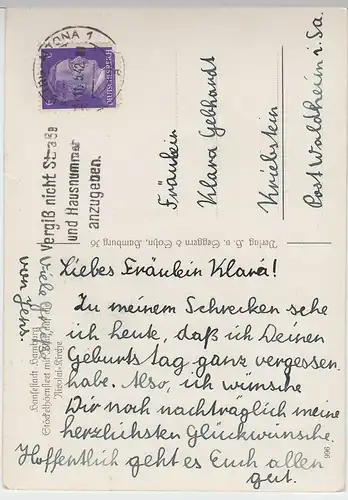 ALTONA 1
DEUTSCHES REICH
6
Vergiß nicht Straße
und Hausnummer
anzugeben.
Fräulein
Klara Gebhardt
Kriebstein
Post Waldheim i. Sa.
Verlag H. v. Seggern & Sohn, Hamburg 36
Hansestadt Hamburg
Stöckelhörnfleet mit
Nikolai-Kirche
996
Liebes Fräulein Klara!
Zu meinem Schrecken sehe
ich heute, daß ich Deinen
Geburtstag ganz vergessen
habe. Also, ich wünsche
Dir noch nachträglich meine
herzlichsten Glückwünsche.
Hoffentlich geht es Euch allen
gut.
Viele Grüße
von Jehs.